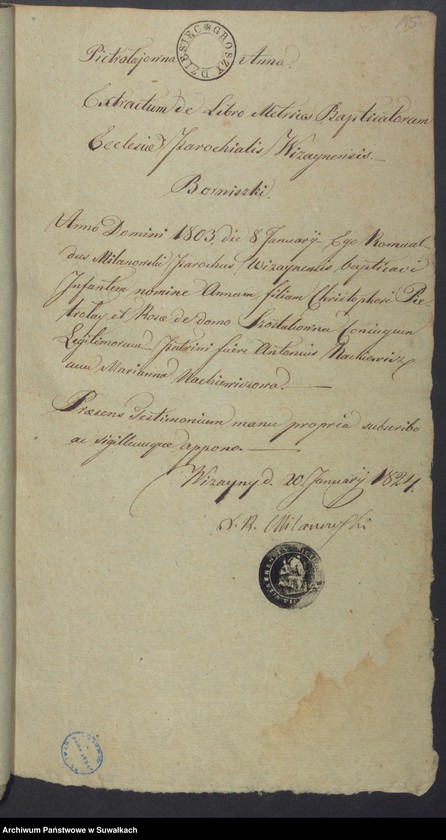 15
DZIESIĘC GROSZY
Pietralajowna Anna.
Extractum de Libro Metrices Baptisatorum
Ecclesiæ Parochialis Wizaynensis
Bolniszki.
Anno Domini 1803 die 8 January Ego Romual
dus Milanowski Parochus Wizaynensis baptisavi
Infantem nomine Annam filiam Christophori Pie
tralay et Rosæ de domo Coniugum
Legitimorum Patrini fuere Antonius Mackiewicz
cum Marianna Mackiewiczowa.
Præsens Testimonium manu propria subscribo
ac Sigillumque appono.
Wizayny d. 20. January 1824.
X. R. Milanowski
Archiwum Państwowe w Suwałkach